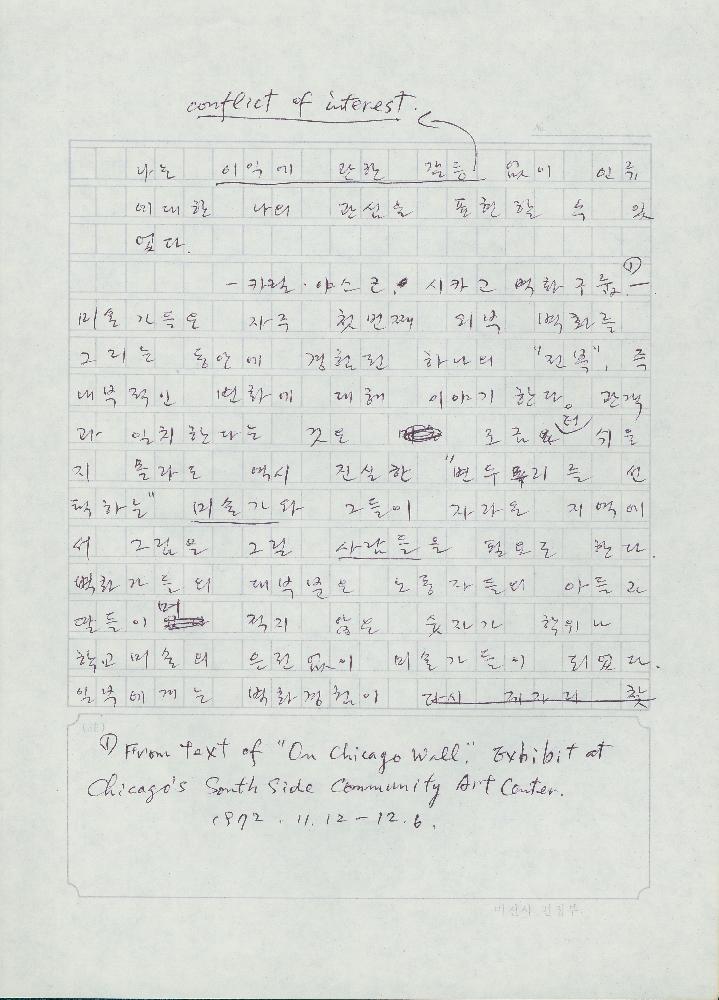 conflict of interest.
No.
나는 이익에 관한 갈등 없이 인류
에 대한 나의 관심을 표현할 수 있
었다.
- 카릴·야스코, 시카고 벽화 구룹. - ①
미술가들은 자주 첫번째 외부 벽화를
그리는 동안에 경험된 하나의 "전복", 즉
내부적인 변화에 대해 이야기 한다. 관객
과 일치한다는 것은 조금 더 쉬울
지 몰라도 역시 진실한 "변두리를 선
택하는" 미술가와 그들이 자라온 지역에
서 그림을 그릴 사람들을 필요로 한다.
벽화가들의 대부분은 노동자들의 아들과
딸들이며 적지 않은 숫자가 학위나
학교 미술의 은전없이 미술가들이 되었다.
일부에게는 벽화경험이 다시 제자리 찾
① From text of "On Chicago Wall," Exhibit at
Chicago's South Side Community Art Center.
1972. 11. 12 - 12. 6.
미진사 편집부